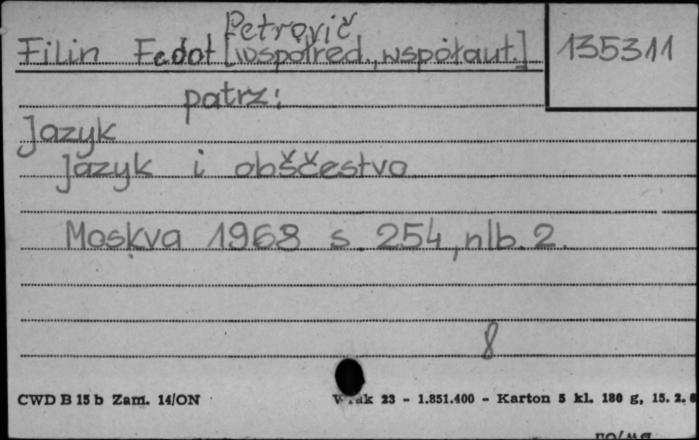 Petrovič
Filin Fedot [współred., współaut.] 135311
patrz:
Jazyk
Jazyk i obščestvo
Moskva 1968 s. 254, nlb. 2.
8
CWD B 15 b Zam. 14/ON 23 - 1.851.400 - Karton 5 kl. 180 g, 15. 2. 6